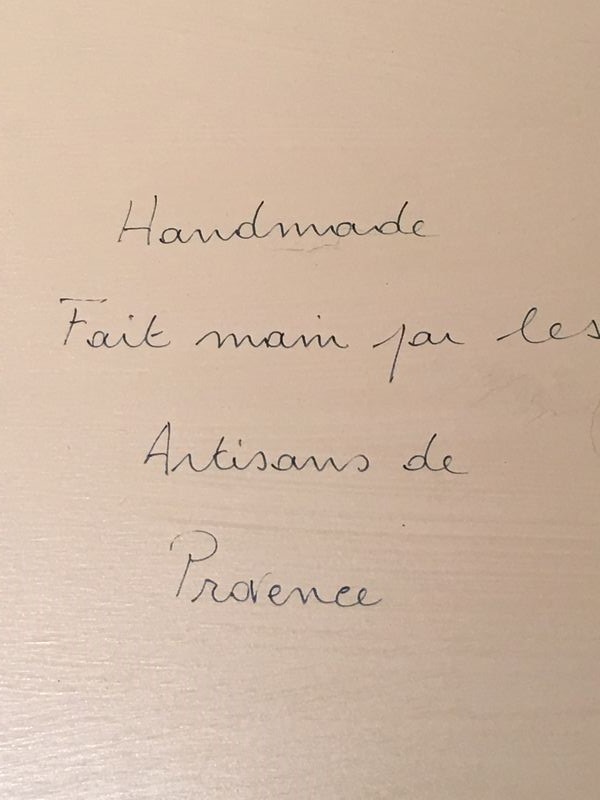 Handmade
Fait main par les
Artisans de
Provence